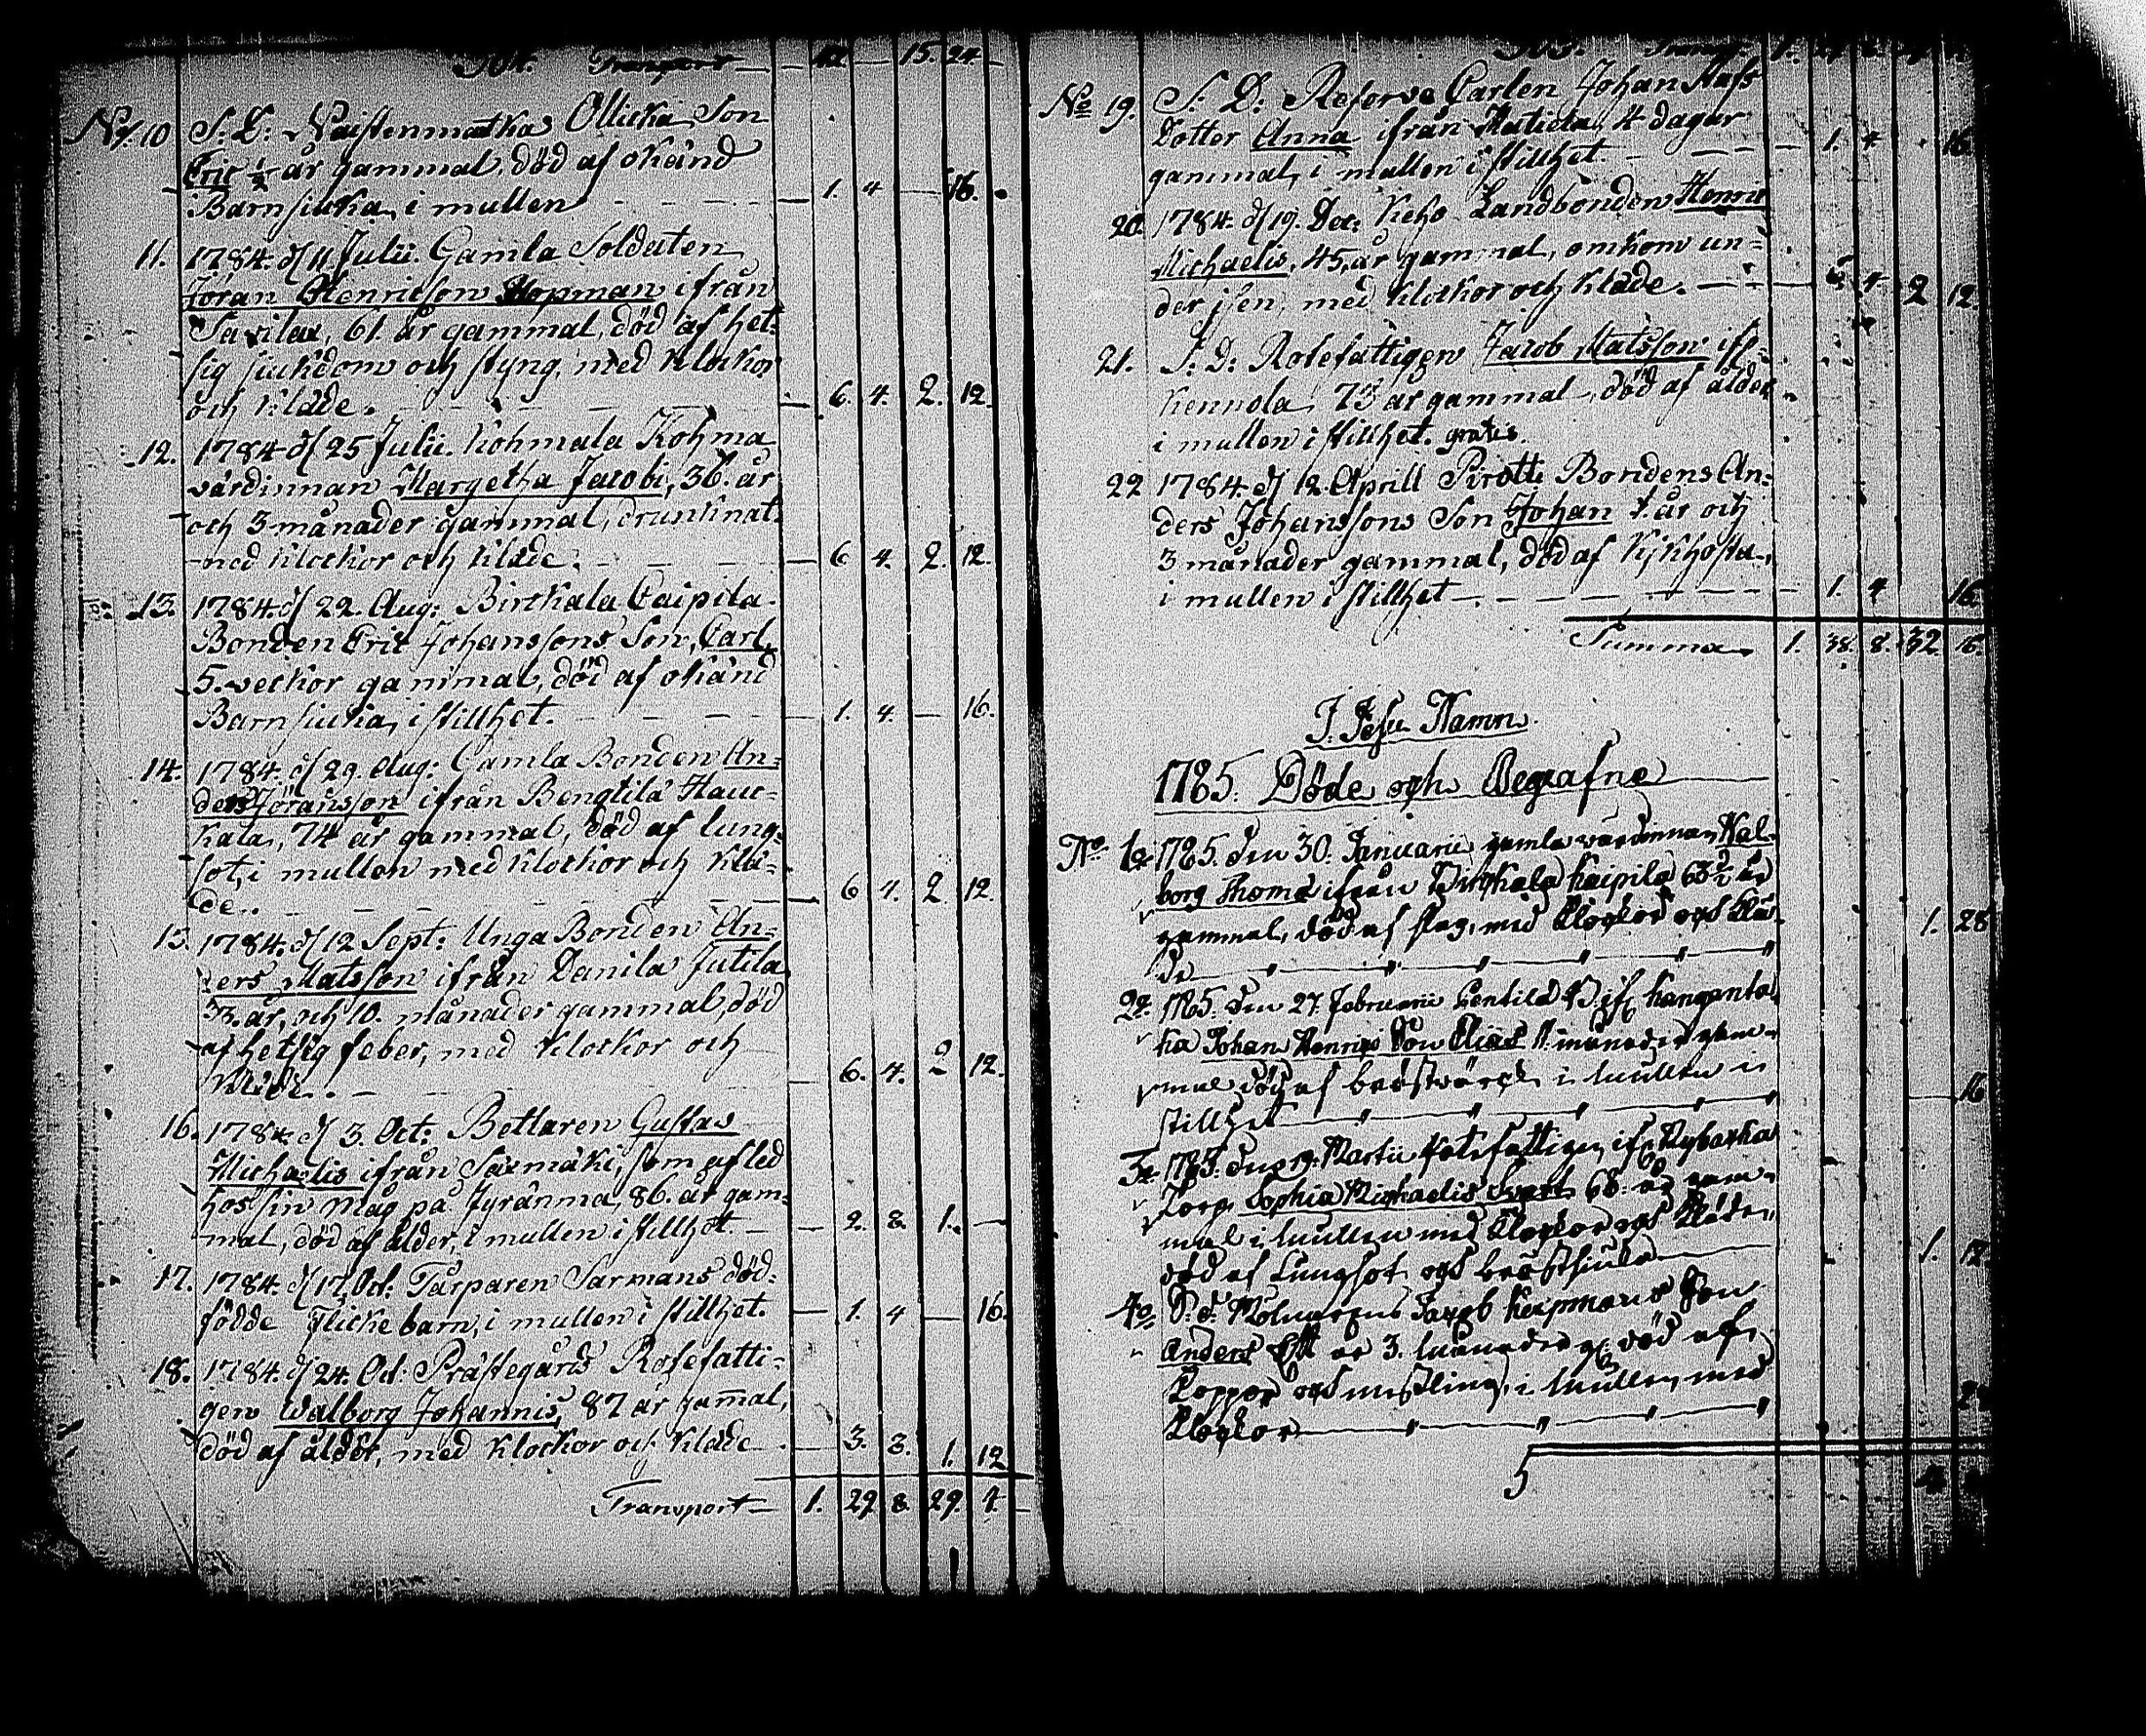 Transport 15. 24
No. 10 S: D: Naistenmatkas Ollicka Son
Eric 1/2 år gammal, död af okänd
Barnsiuka, i mullen 1. 4 — 16.
11. 1784. d/11 Julii. Gamla Soldaten
Jöran Henricson Hopman ifrån
Savilax, 61. år gammal, död af het-
sig siukdom och styng, med klockor
och kläde. 6. 4. 2. 12.
12. 1784 d/25 Julii. Kohmala Kohma
värdinnan Margetha Jacobi, 36. år
och 3 månader gammal, drunknat
med klockor och kläde. 6 4. 2. 12.
13. 1784. d/22. Aug: Birkala Caipila
Bonden Eric Johanssons Son, Carl,
5. veckor gammal, död af okänd
Barnsiuka, i stillhet. 1. 4. — 16.
14. 1784. d/29. Aug: Gamla Bonden An-
ders Jöransson ifrån Bengtilä Hau-
kala, 74 år gammal, död af lung-
sot, i mullen med klockor och klä-
de. 6 4. 2. 12.
15. 1784. d/12 Sept: Unga Bonden An-
ders Matsson ifrån Danila Jutila
33. år, och 10. månader gammal, död
af hetsig feber, med klockor och
kläde. 6. 4. 2 12.
16. 1784. d/ 3. Oct: Bettaren Gustav
Michaelis ifrån Särmäki, som afled
hos sin måg på Jyränma, 86. år gam-
mal, död af ålder, i mullen i stillhet 2. 8. 1. —
17. 1784. d/17. Oct: Tårparen Sarmans död-
födde Flicke barn, i mullen i stillhet. 1. 4 — 16.
18. 1784. d/24. Oct: Prästegårds Rotefatti-
gen Walborg Johannis, 87 år gamal,
död af ålder, med klockor och kläde 3. 8. 1. 12
Transport 1. 29 8. 29. 4.
No 19. S: D: Reserve Carlen Johan
Dotter Anna ifrån 4 dagar
gammal, i mullen i stillhet. 1. 4 16
20. 1784. d/19. Dec: Keho Landbonden Henric
Michaelis, 45, år gammal, omkom un-
der jsen, med klockor och kläde. 6 4 2 12
21. S. D: Rotefattigen Jacob Matsson ifr
Kennola 73 år gammal, död af ålder
i mullen i stillhet. gratis.
22 1784. d/ 12. Aprill Pirotti Bondens An-
ders Johanssons Son Johan 1. år och
3 månader gammal, död af Kikhosta,
i mullen i stillhet 1. 4 16.
Summa 1. 38. 8. 32. 16.
J. Jesu Namn.
1785. Döde och Begrafne
No 1o 1785. den 30. Januarii gamla värdinnan Wal-
borg Thomæ ifrån Birckala Kaipila 63 1/2 år
gammal, död af slag, med klockor och klä-
de 1. 28
2o 1785. den 27. Februarii B. ifr
Johan Henrics Son Elias månader gam-
mal död af bröstvärck i mullen i
stillhet 16
3o 1785. den Martii Rotefattigen ifr
Torp, Sophia Michaelis 68. år gam-
mal i mullen med klockor och kläde,
död af Lungsot och bröstsiuka 1. 12
4o S. d. Jacob Son
Anders Ett år 3. månader g: död af
Koppor och messling, i mullen, med
klockor
5